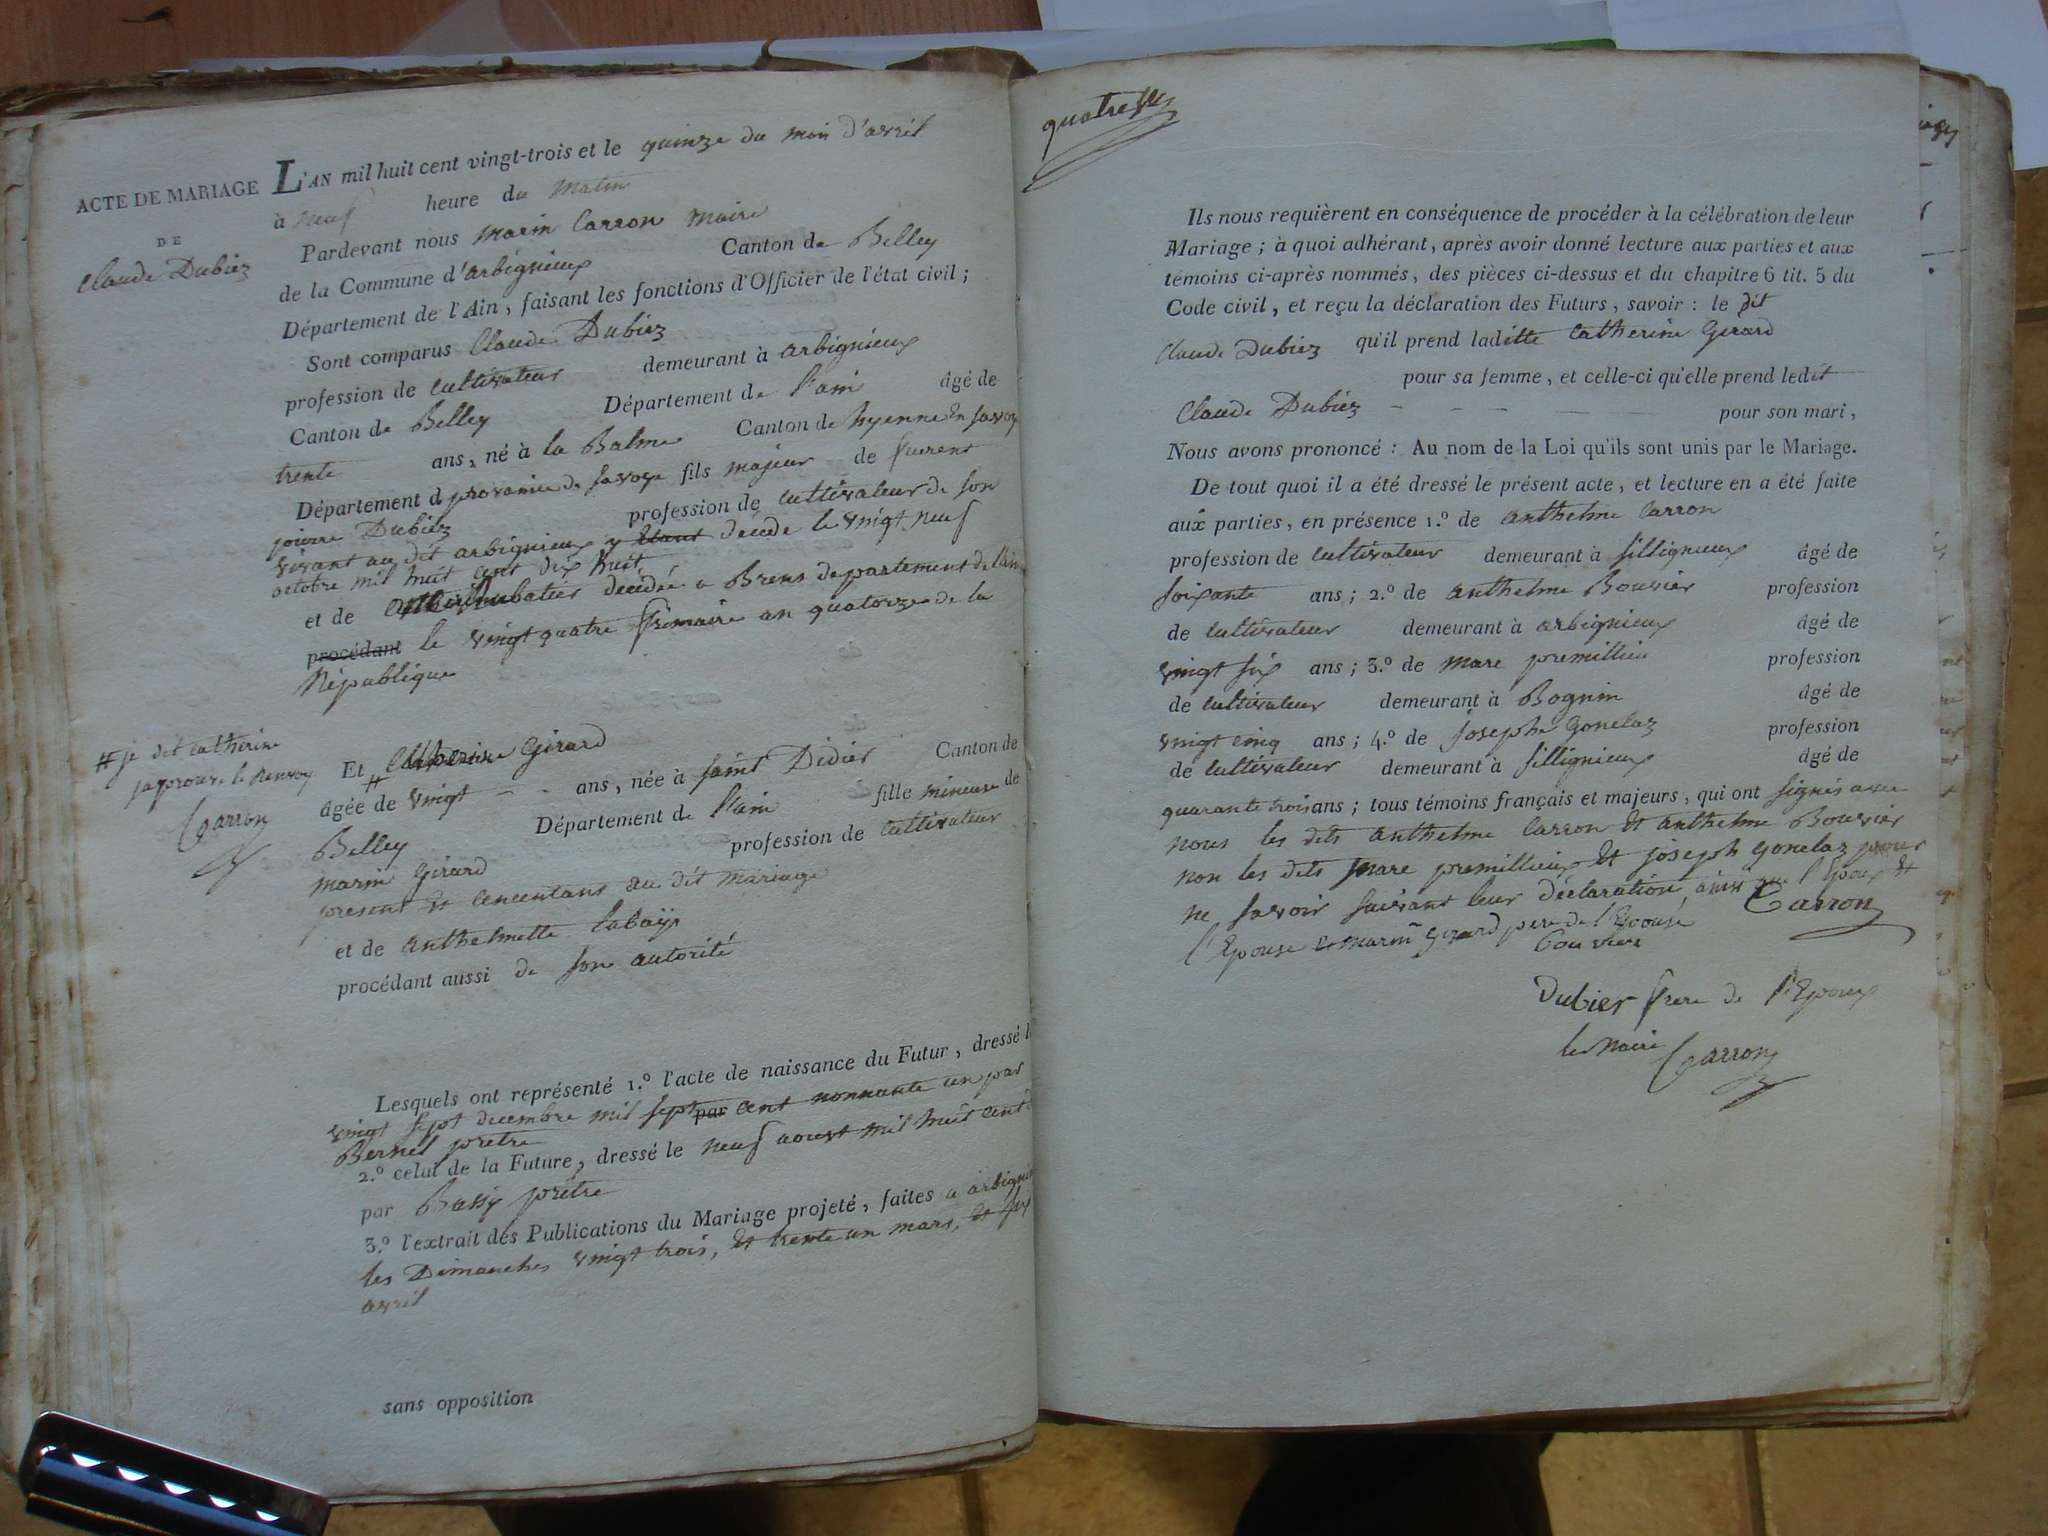 ACTE DE MARIAGE
DE
Claude Dubiez
L'AN mil huit cent vingt-trois et le quinze du mois d'avril
à neuf heure du matin
Pardevant nous marin Carron maire
de la Commune d'arbignieux Canton de Belley
Département de l'Ain, faisant les fonctions d'Officier de l'état civil ;
Sont comparus Claude Dubiez
profession de cultivateur demeurant à arbignieux
Canton de Belley Département de l'ain âgé de
trente ans, né à la Balme Canton de hyenne en savoye
Département d province de savoye fils majeur de
Dubiez profession de cultivateur de son
vivant au dit arbignieux y décédé le vingt neuf
octobre mil huit cent dix huit
et de décédée a Brens departement de l'ain
procédant le vingt quatre frimaire an quatorze de la
République
# je dit catherine
japrouve le Renvoy
Carron
Et Catherine Girard
#
âgée de vingt - - ans, née à saint Didier Canton de
Belley Département de l'ain fille mineure de
marin Girard profession de cultivateur
present et concentans au dit mariage
et de anthelmette Labaÿe
procédant aussi de son autorité
Lesquels ont représenté 1.º l'acte de naissance du Futur, dressé le
vingt sept decembre mil sept par cent nonnante un par
Bernel prêtre
2.º celui de la Future, dressé le neuf aoust mil huit cent
par Bassy prêtre
3.º l'extrait des Publications du Mariage projeté, faites a
les Dimanches vingt trois, et trente un mars, et six
avril
sans opposition
Ils nous requièrent en conséquence de procéder à la célébration de leur
Mariage ; à quoi adhérant, après avoir donné lecture aux parties et aux
témoins ci-après nommés, des pièces ci-dessus et du chapitre 6 tit. 5 du
Code civil, et reçu la déclaration des Futurs, savoir : le dit
Claude Dubiez qu'il prend laditte Catherine Girard
pour sa femme, et celle-ci qu'elle prend ledit
Claude Dubiez - - - pour son mari,
Nous avons prononcé : Au nom de la Loi qu'ils sont unis par le Mariage.
De tout quoi il a été dressé le présent acte, et lecture en a été faite
aux parties, en présence 1.º de anthelme Carron
profession de cultivateur demeurant à sillignieux âgé de
soixante ans ; 2.º de anthelme Bouvier profession
de cultivateur demeurant à arbignieux âgé de
vingt six ans ; 3.º de marc premillieu profession
de cultivateur demeurant à Bognin âgé de
vingt cinq ans ; 4.º de joseph Gonelaz profession
de cultivateur demeurant à sillignieux âgé de
quarante trois ans ; tous témoins français et majeurs, qui ont signés avec
nous les dits anthelme Carron et anthelme Bouvier
non les dits marc premillieux et joseph gonelaz pour
ne savoir suivant leur déclaration ainsi que l'Epoux et
l'Epouse et marin Girard pere de l'Epouse Carron
Bouvier
Dubier frere de l'Epoux
le Maire Carron